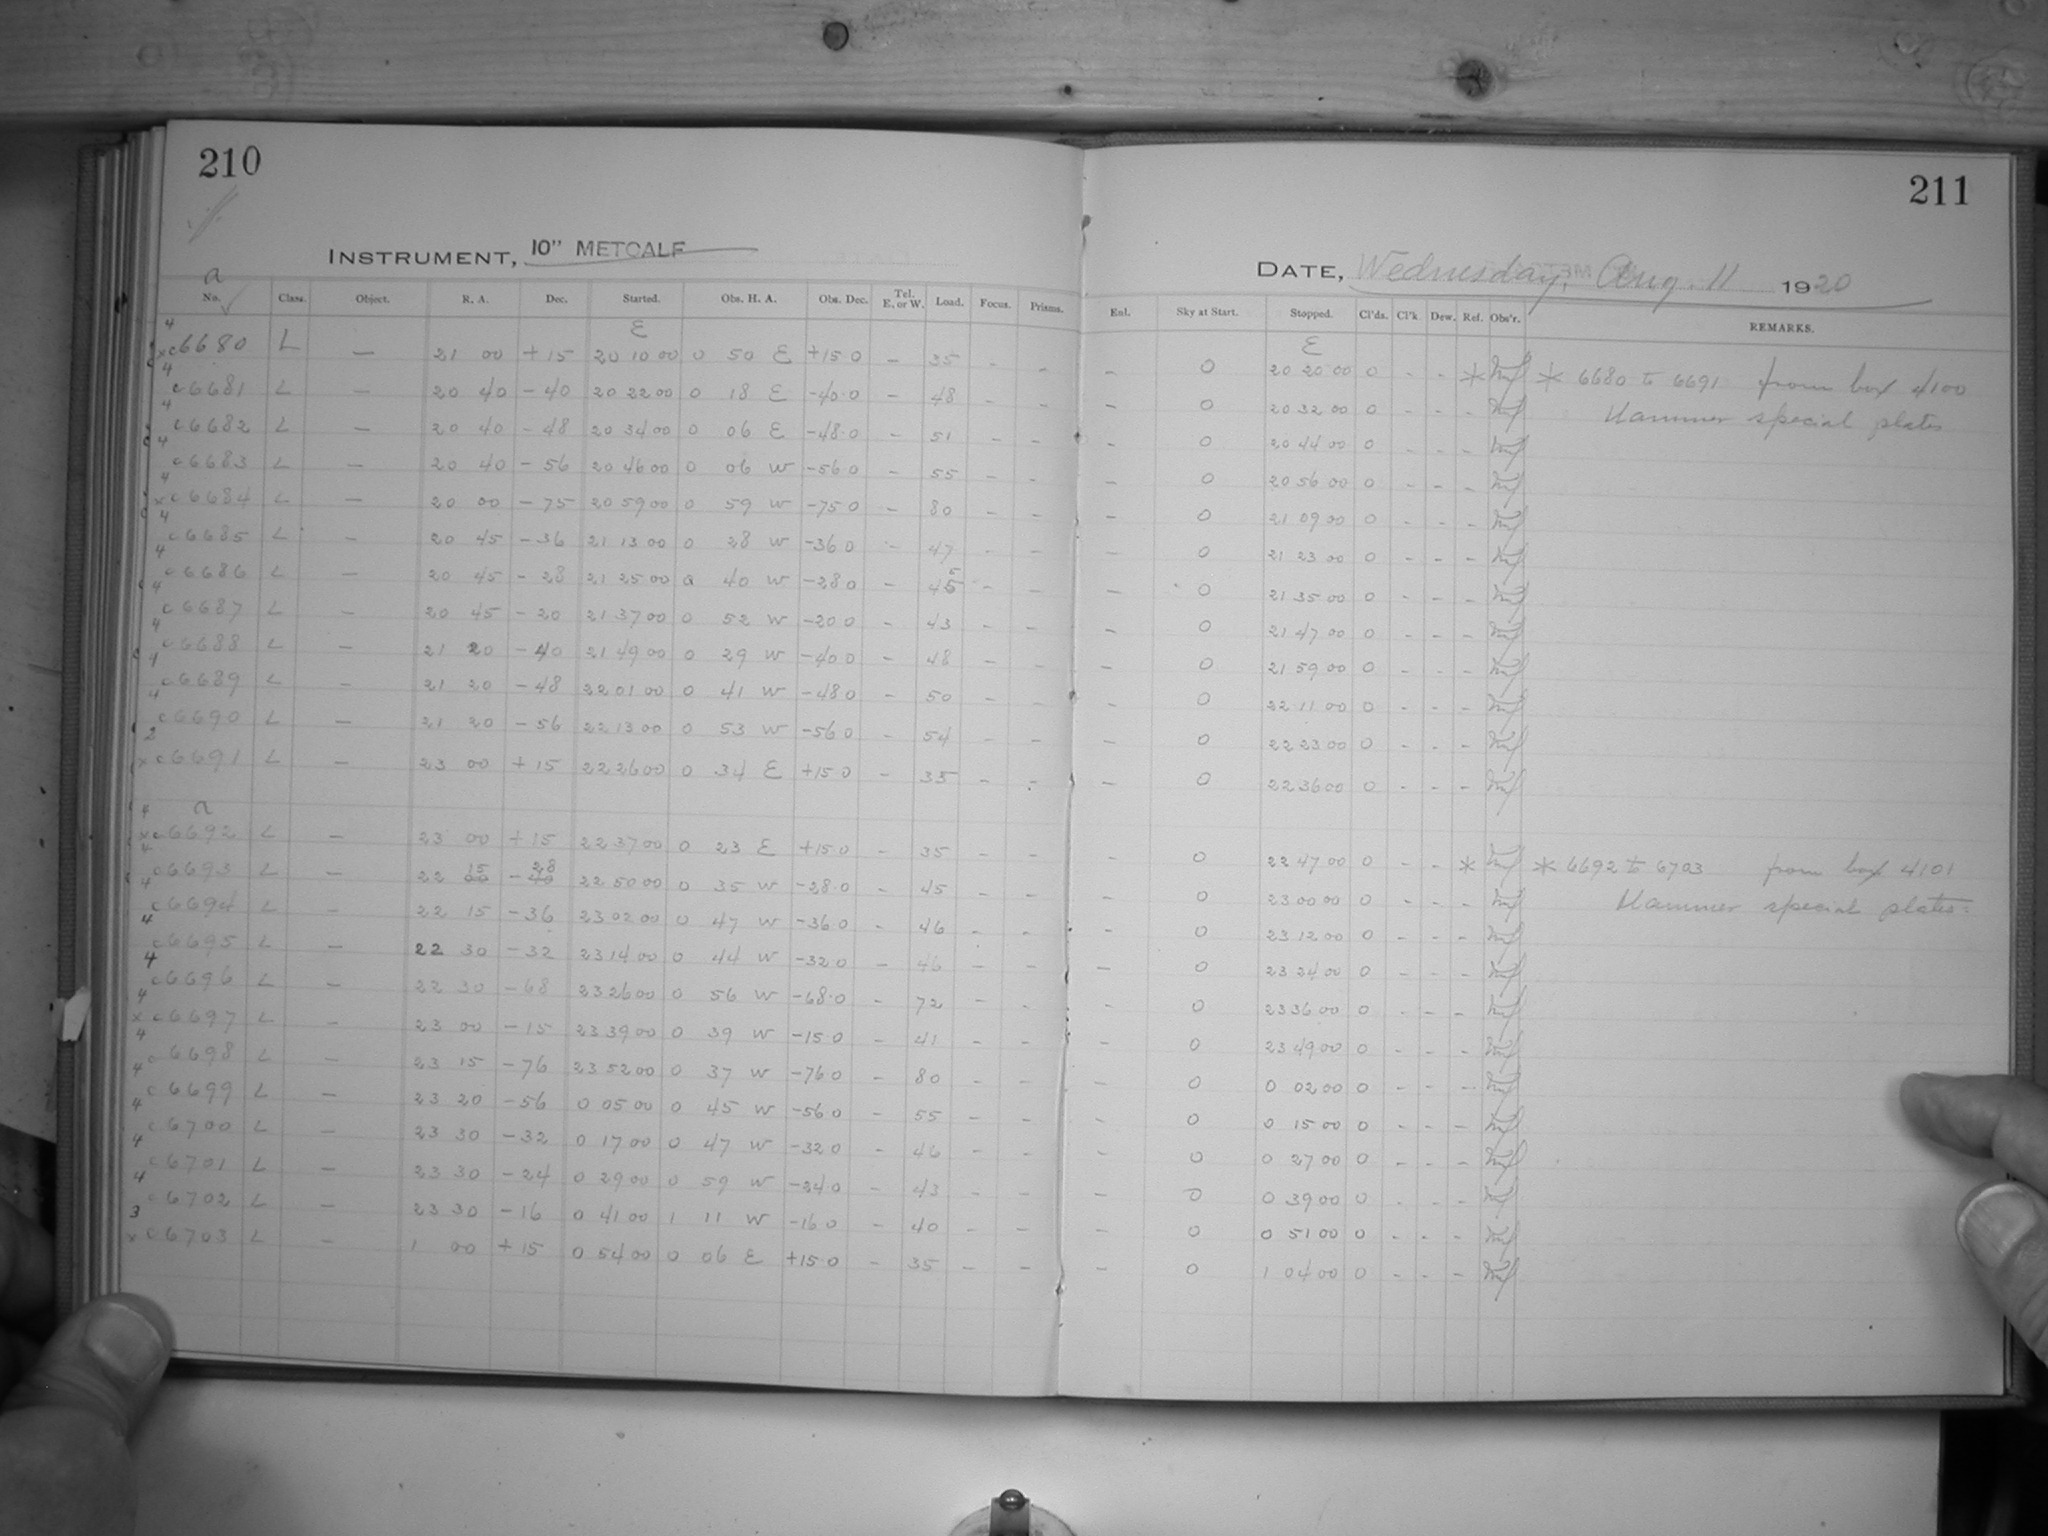 210
INSTRUMENT, 10" METCALF
a
No. Class. Object. R. A. Dec. Started. Obs. H. A. Obs. Dec. Tel. E. or W. Load. Focus. Prisms.
E
c6680 L — 21 00 +15 20 10 00 0 50 E +15 0 - 35 - -
c6681 L — 20 40 -40 20 22 00 0 18 E -40.0 - 48 - -
c6682 L — 20 40 -48 20 34 00 0 06 E -48.0 - 51 - -
c6683 L — 20 40 -56 20 46 00 0 06 W -56 0 - 55 - -
c6684 L — 20 00 -75 20 59 00 0 59 W -75 0 - 80 - -
c6685 L — 20 45 -36 21 13 00 0 28 W -36 0 - 47 - -
c6686 L — 20 45 -28 21 25 00 0 40 W -28 0 - 45 - -
c6687 L — 20 45 -20 21 37 00 0 52 W -20 0 - 43 - -
c6688 L — 21 20 -40 21 49 00 0 29 W -40 0 - 48 - -
c6689 L — 21 20 -48 22 01 00 0 41 W -48 0 - 50 - -
c6690 L — 21 20 -56 22 13 00 0 53 W -56 0 - 54 - -
c6691 L — 23 00 +15 22 26 00 0 34 E +15 0 - 35 - -
a
c6692 L — 23 00 +15 22 37 00 0 23 E +15.0 - 35 - -
c6693 L — 22 15 -28 22 50 00 0 35 W -28.0 - 45 - -
c6694 L — 22 15 -36 23 02 00 0 47 W -36.0 - 46 - -
c6695 L — 22 30 -32 23 14 00 0 44 W -32.0 - 46 - -
c6696 L — 22 30 -68 23 26 00 0 56 W -68.0 - 72 - -
c6697 L — 23 00 -15 23 39 00 0 39 W -15.0 - 41 - -
c6698 L — 23 15 -76 23 52 00 0 37 W -76 0 - 80 - -
c6699 L — 23 20 -56 0 05 00 0 45 W -56 0 - 55 - -
c6700 L — 23 30 -32 0 17 00 0 47 W -32 0 - 46 - -
c6701 L — 23 30 -24 0 29 00 0 59 W -24 0 - 43 - -
c6702 L — 23 30 -16 0 41 00 1 11 W -16 0 - 40 - -
c6703 L — 1 00 +15 0 54 00 0 06 E +15 0 - 35 - -
211
DATE, Wednesday, Aug. 11 1920
Enl. Sky at Start. Stopped. Cl'ds. Cl'k Dew. Ref. Obs'r. REMARKS.
E
- 0 20 20 00 0 - - * * 6680 to 6691 from box 4100
- 0 20 32 00 0 - - - Hammer special plates
- 0 20 44 00 0 - - -
- 0 20 56 00 0 - - -
- 0 21 09 00 0 - - -
- 0 21 23 00 0 - - -
- 0 21 35 00 0 - - -
- 0 21 47 00 0 - - -
- 0 21 59 00 0 - - -
- 0 22 11 00 0 - - -
- 0 22 23 00 0 - - -
- 0 22 36 00 0 - - -
- 0 22 47 00 0 - - * * 6692 to 6703 from box 4101
- 0 23 00 00 0 - - - Hammer special plates
- 0 23 12 00 0 - - -
- 0 23 24 00 0 - - -
- 0 23 36 00 0 - - -
- 0 23 49 00 0 - - -
- 0 0 02 00 0 - - -
- 0 0 15 00 0 - - -
- 0 0 27 00 0 - - -
- 0 0 39 00 0 - - -
- 0 0 51 00 0 - - -
- 0 1 04 00 0 - - -